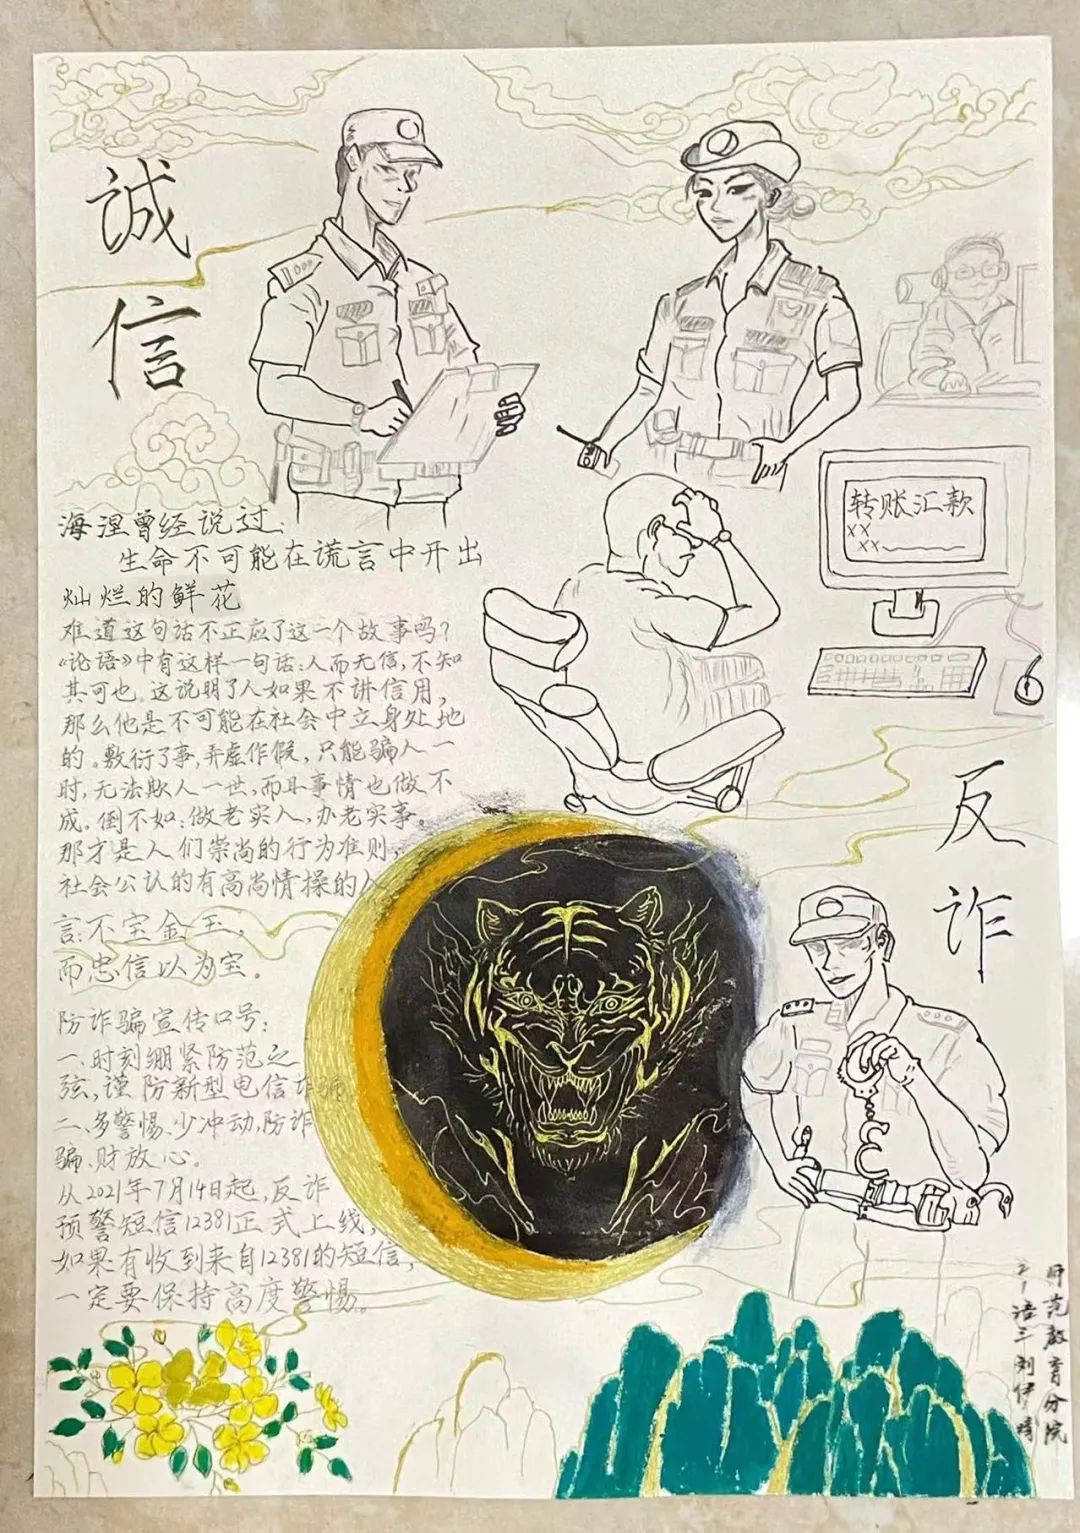 誠
信
海涅曾经说过:
生命不可能在谎言中开出
灿烂的鲜花
难道这句话不正应了这一个故事吗?
《论语》中有这样一句话:人而无信,不知
其可也。这说明了人如果不讲信用,
那么他是不可能在社会中立身处地
的。敷衍了事,弄虚作假,只能骗人一
时,无法欺人一世,而且事情也做不
成。倒不如:做老实人,办老实事。
那才是人们崇尚的行为准则,
社会公认的有高尚情操的人
言:不宝金玉,
而忠信以为宝。
防诈骗宣传口号:
一、时刻绷紧防范之
弦,谨防新型电信诈骗
二、多警惕、少冲动,防诈
骗、财放心。
从2021年7月14日起,反诈
预警短信12381正式上线,
如果有收到来自12381的短信,
一定要保持高度警惕。
转账汇款
xx
xx
反
诈
师范教育分院
21语三刘伊